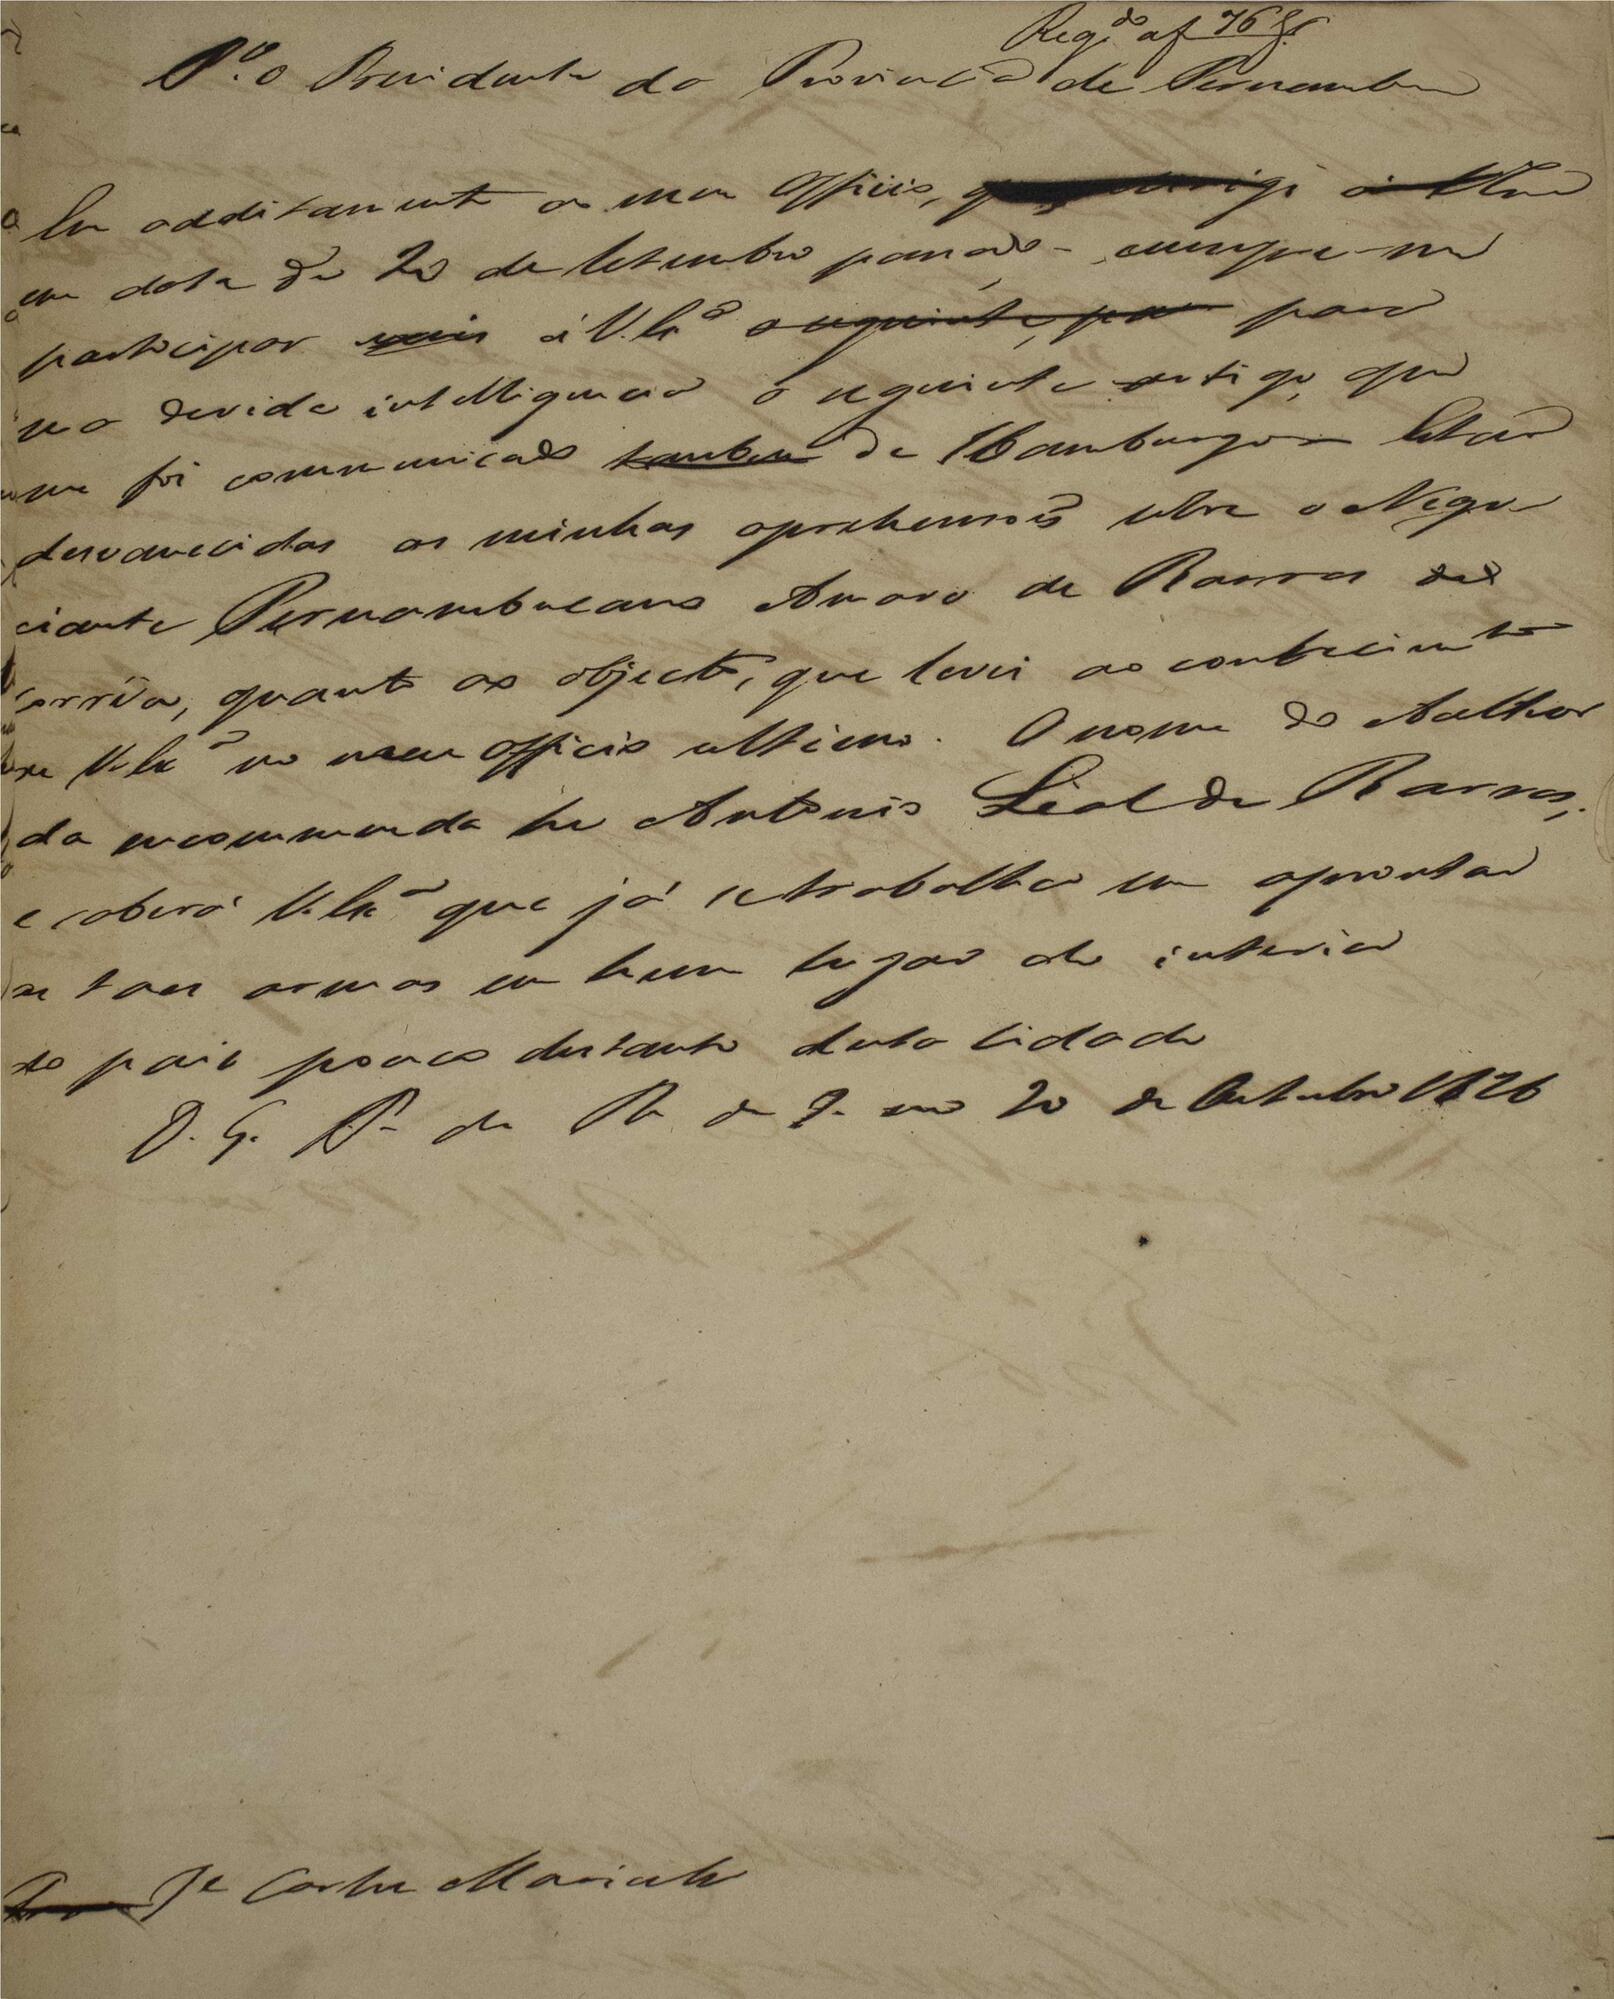 Reg.do a f 76
P.a o Presidente da Provincia de Pernambuco
Em additamento ao meu Officio, que dirigi á V Exa
em data de 20 de Setembro passado cumpre-me
participar mais á V. Exa o seguinte, para para
sua devida intelligencia o seguinte artigo, que
me foi communicado tambem de Hamburgo Estão
desvanecidas as minhas aprehensoẽs sobre o Nego-
ciante Pernambucano Amaro de Barros
Corrêa, quanto ao objecto, que levei ao conhecimto
de V. Exa no meu Officio ultimo. O nome do Author
da encommenda he Antonio Leal de Barros,
e saberá V. Exa que já se trabalha em aprontar
se taes armas em hum lugar do interior
do paiz pouco distante desta Cidade
D. G. Pa. da R. de J. em 20 de Outubro 1826
Je Carlos